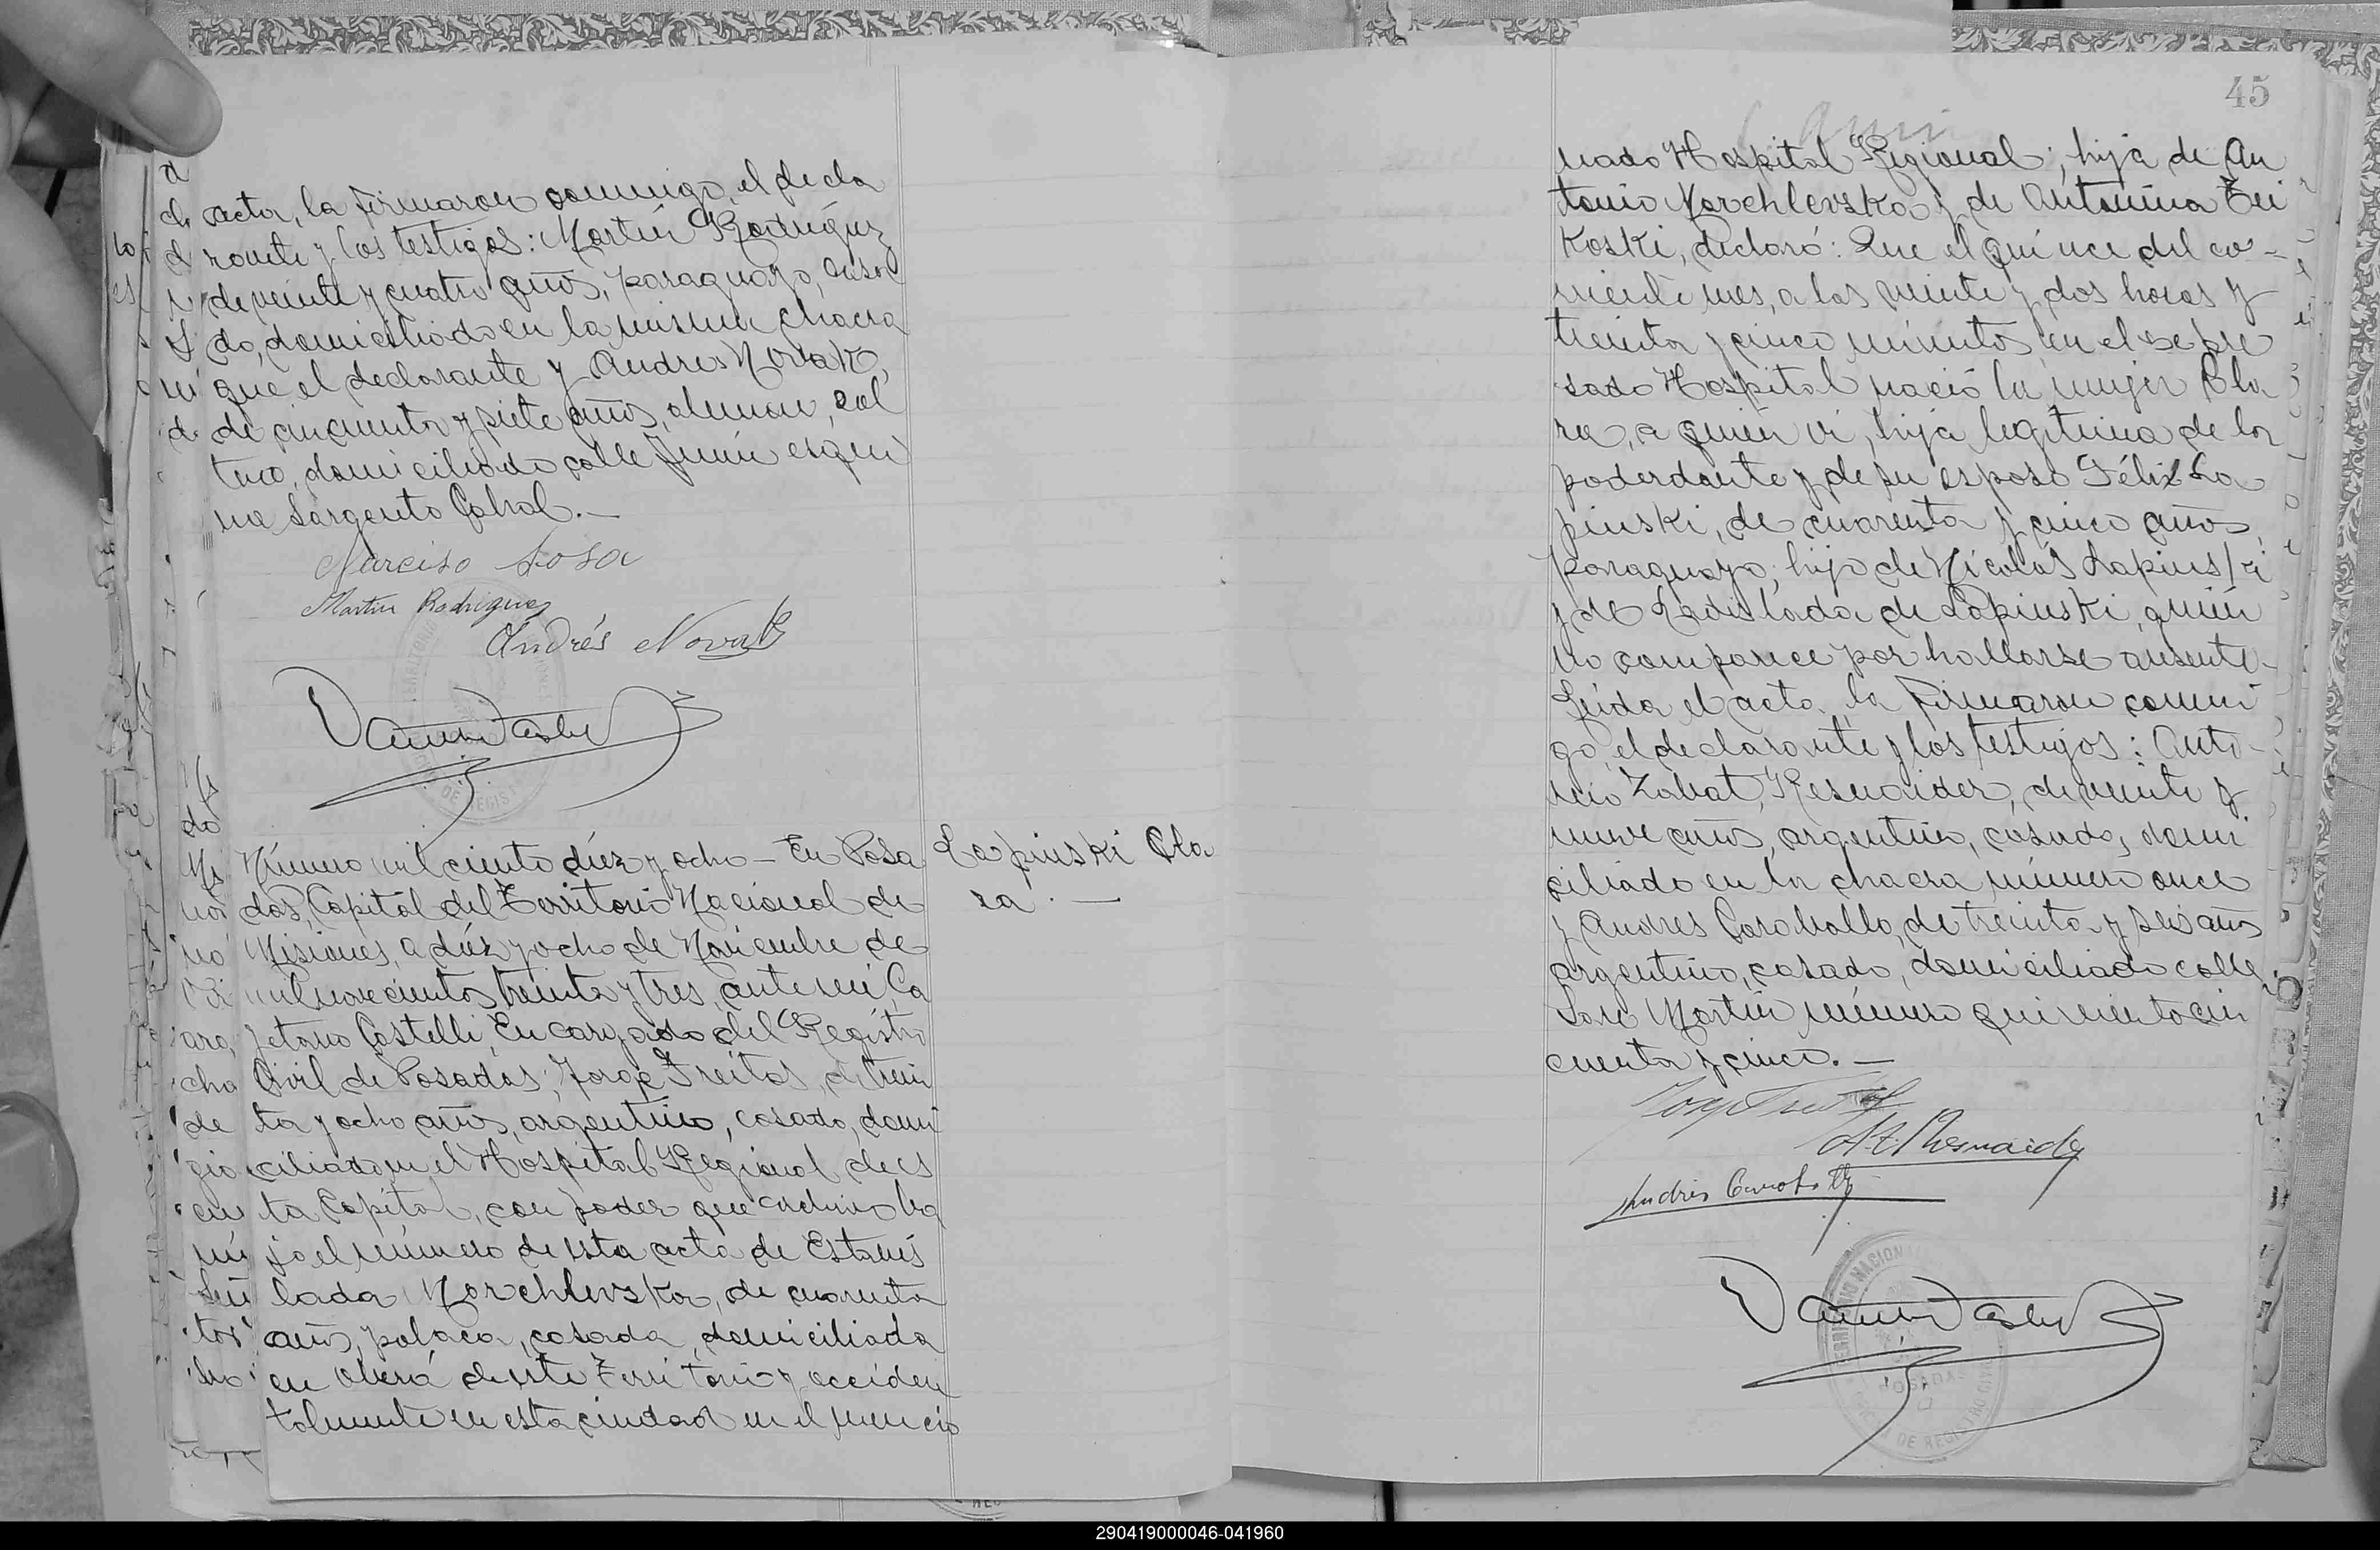 acta, la firmaron conmigo, el decla
rante y los testigos: Martín Rodríguez
de veinte y cuatro años, paraguayo, casa
do, domiciliado en la misma chacra
que el declarante y Andres Novak,
de cincuenta y siete años, aleman, sol
tero, domiciliado calle Junín esqui
na Sargento Cabral.—
Narciso Sosa
Martin Rodriguez
Andrés Novak
Número mil ciento diez y ocho — En Posa
das, Capital del Territorio Nacional de
Misiones, a diez y ocho de Noviembre de
mil novecientos treinta y tres, ante mí, Ca
yetano Castelli, Encargado del Registro
Civil de Posadas; Jorge Freitas, de trein
ta y ocho años, argentino, casado, domi
ciliado en el Hospital Regional de es
ta Capital, con poder que archivo ba
jo el número de esta acta de Estanis
lada Morchlevska, de cuarenta
años, polaca, casada, domiciliada
en Oberá de este Territorio y acciden
talmente en esta ciudad en el mencio
Lapinski Cla
ra.—
45
nado Hospital Regional; hija de An
tonio Morchlevska y de Antonina
koski, declaró: Que el quince del co-
rriente mes, a las veinte y dos horas y
treinta y cinco minutos en el expre
sado Hospital nació la mujer Cla
ra, a quien vi, hija legitima de la
poderdante y de su esposo Félix La
pinski, de cuarenta y cinco años,
paraguayo, hijo de Nicolás Lapinski
y de Ladislada de Lapinski, quien
no comparece por hallarse ausente.-
Leida el acta, la firmaron conmi
go, el declarante y los testigos: Anto-
nio Zabat Resnaider, de veinte y
nueve años, argentino, casado, domi
ciliado en la chacra número once
y Andres Caraballo, de treinta y seis años
argentino, casado, domiciliado calle
San Martín número quinientos cin
cuenta y cinco.—
Andrés Caraballo
POSADAS
290419000046-041960